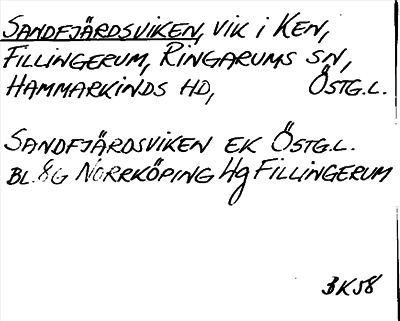 SANDFJÄRDSVIKEN, VIK I KEN,
FILLINGERUM, RINGARUMS SN,
HAMMARKINDS HD, ÖSTG.L.
SANDFJÄRDSVIKEN EK ÖSTG.L.
BL. 8G NORRKÖPING 4g FILLINGERUM
BK58